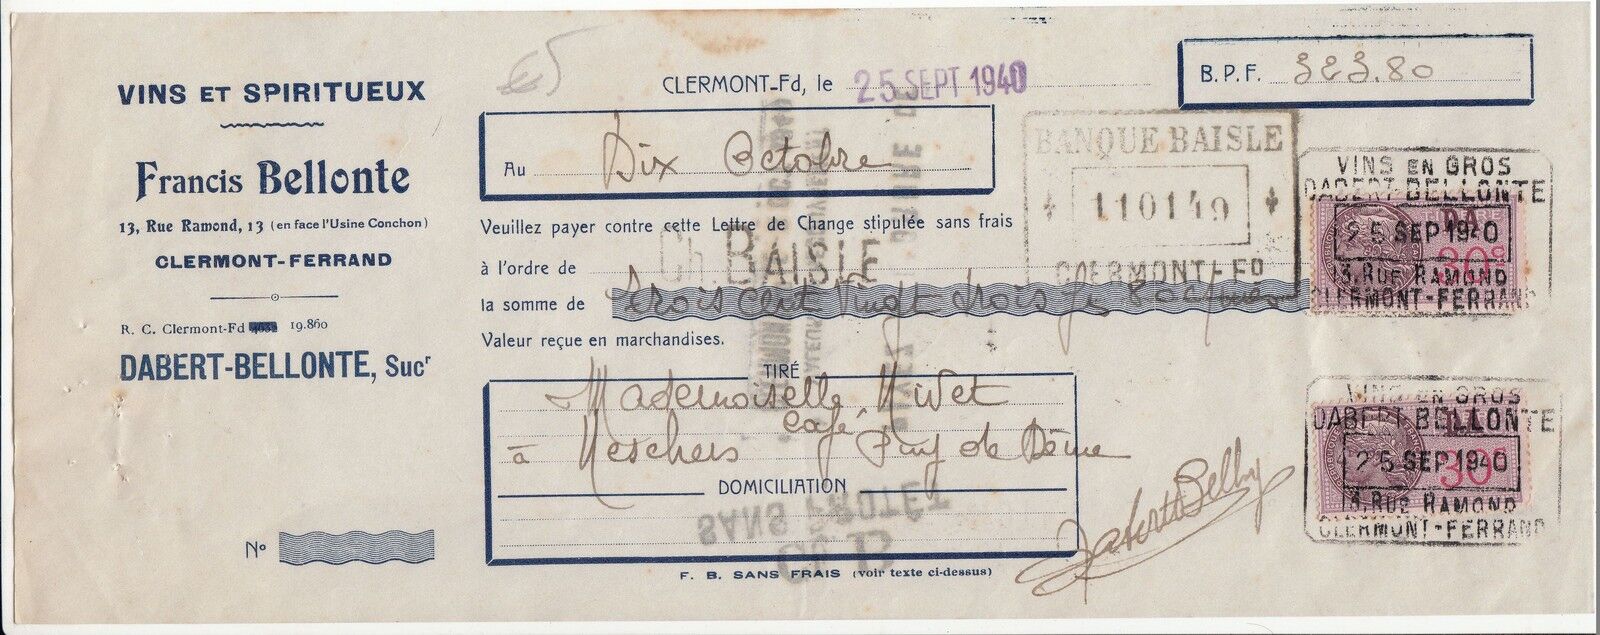 VINS ET SPIRITUEUX
Francis Bellonte
13, Rue Ramond, 13 (en face l'Usine Conchon)
CLERMONT-FERRAND
R. C. Clermont-Fd 19.860
DABERT-BELLONTE, Sucr
No
65
CLERMONT-Fd, le 25 SEPT 1940
B. P. F. 323.80
Au Dix Octobre
Veuillez payer contre cette Lettre de Change stipulée sans frais
à l'ordre de Ch. BAISLE
la somme de trois cent vingt trois
Valeur reçue en marchandises.
TIRÉ
Mademoiselle Nivet
Café
à Neschers Puy de Dôme
DOMICILIATION
SANS PROTÊT
F. B. SANS FRAIS (voir texte ci-dessus)
BANQUE BAISLE
110149
CLERMONT-FD
VINS EN GROS
DABERT-BELLONTE
25 SEP 1940
30c
13, RUE RAMOND
CLERMONT-FERRAND
VINS EN GROS
DABERT BELLONTE
25 SEP 1940
30c
13, RUE RAMOND
CLERMONT-FERRAND